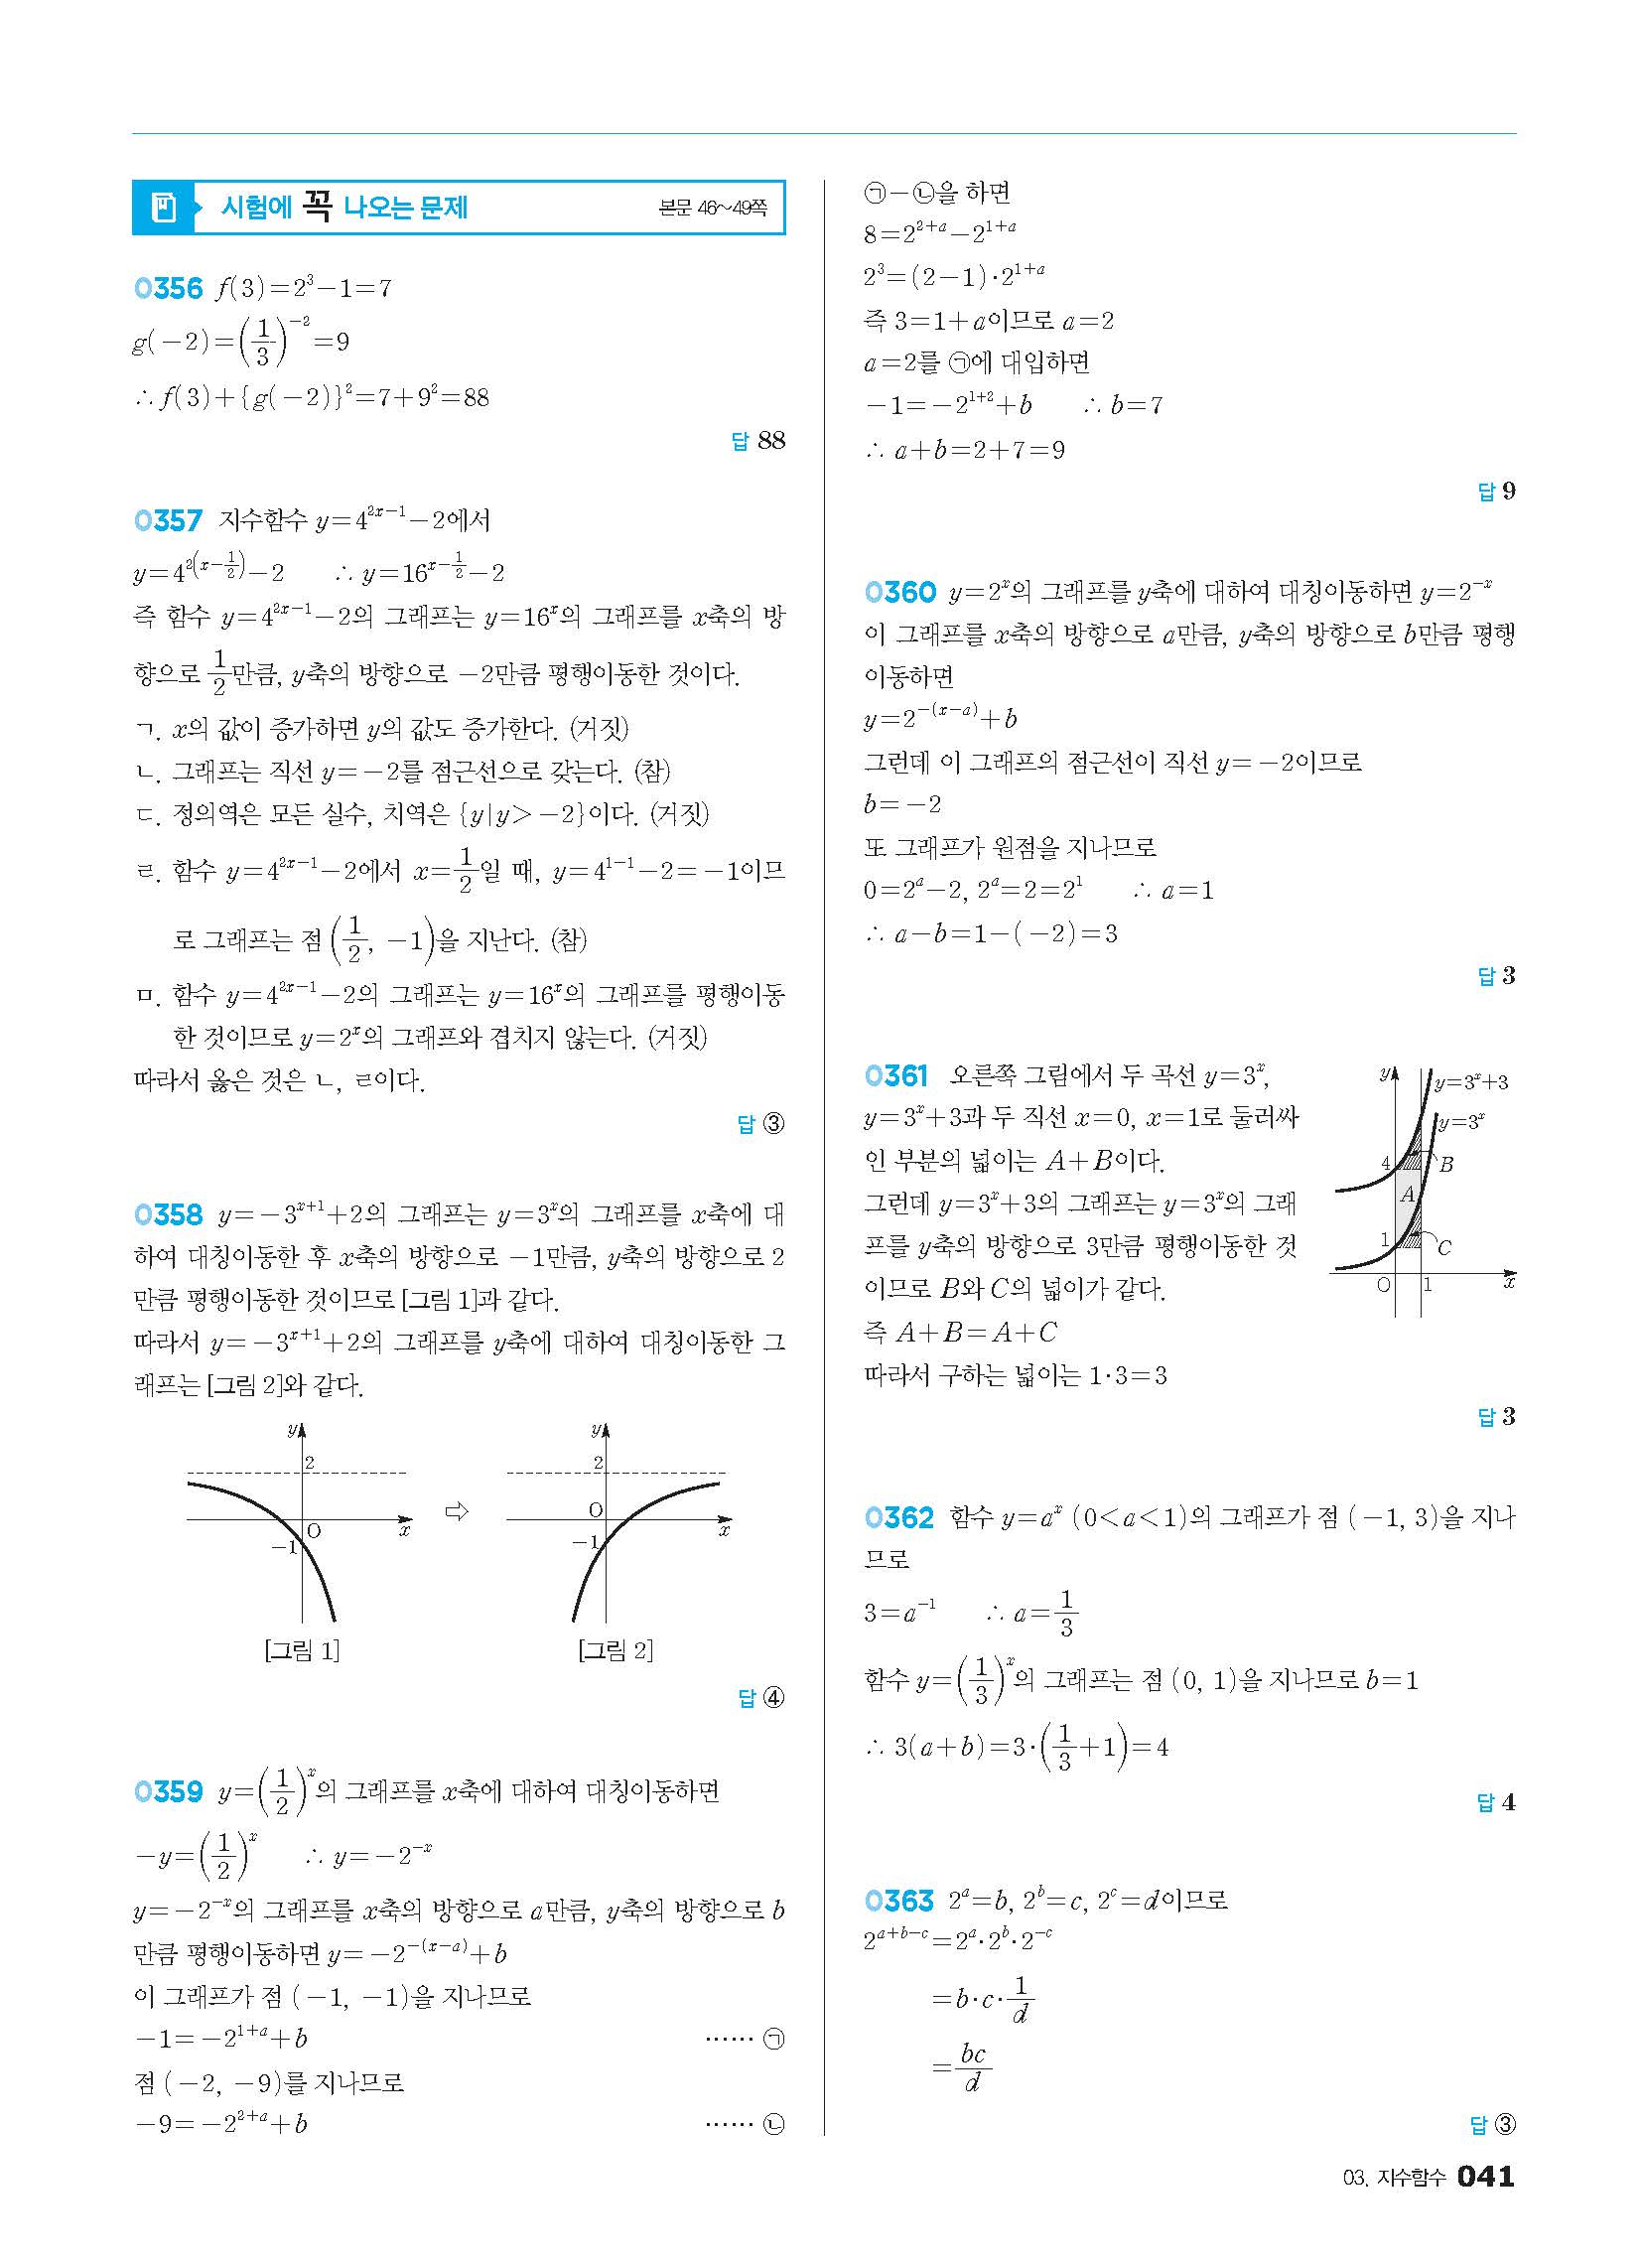 시험에 꼭 나오는 문제 본문 46~49쪽
0356 f(3)=2³-1=7
g(-2)=(1/3)^{-2}=9
∴ f(3)+{g(-2)}²=7+9²=88
답 88
0357 지수함수 y=4^{2x-1}-2에서
y=4^{2(x-1/2)}-2 ∴ y=16^{x-1/2}-2
즉 함수 y=4^{2x-1}-2의 그래프는 y=16^x의 그래프를 x축의 방
향으로 1/2만큼, y축의 방향으로 -2만큼 평행이동한 것이다.
ㄱ. x의 값이 증가하면 y의 값도 증가한다. (거짓)
ㄴ. 그래프는 직선 y=-2를 점근선으로 갖는다. (참)
ㄷ. 정의역은 모든 실수, 치역은 {y|y>-2}이다. (거짓)
ㄹ. 함수 y=4^{2x-1}-2에서 x=1/2일 때, y=4^{1-1}-2=-1이므
로 그래프는 점 (1/2, -1)을 지난다. (참)
ㅁ. 함수 y=4^{2x-1}-2의 그래프는 y=16^x의 그래프를 평행이동
한 것이므로 y=2^x의 그래프와 겹치지 않는다. (거짓)
따라서 옳은 것은 ㄴ, ㄹ이다.
답 ③
0358 y=-3^{x+1}+2의 그래프는 y=3^x의 그래프를 x축에 대
하여 대칭이동한 후 x축의 방향으로 -1만큼, y축의 방향으로 2
만큼 평행이동한 것이므로 [그림 1]과 같다.
따라서 y=-3^{x+1}+2의 그래프를 y축에 대하여 대칭이동한 그
래프는 [그림 2]와 같다.
y 2 O x -1
⇨
y 2 O x -1
[그림 1] [그림 2]
답 ④
0359 y=(1/2)^x의 그래프를 x축에 대하여 대칭이동하면
-y=(1/2)^x ∴ y=-2^{-x}
y=-2^{-x}의 그래프를 x축의 방향으로 a만큼, y축의 방향으로 b
만큼 평행이동하면 y=-2^{-(x-a)}+b
이 그래프가 점 (-1, -1)을 지나므로
-1=-2^{1+a}+b …… ㉠
점 (-2, -9)를 지나므로
-9=-2^{2+a}+b …… ㉡
㉠-㉡을 하면
8=2^{2+a}-2^{1+a}
2³=(2-1)·2^{1+a}
즉 3=1+a이므로 a=2
a=2를 ㉠에 대입하면
-1=-2^{1+2}+b ∴ b=7
∴ a+b=2+7=9
답 9
0360 y=2^x의 그래프를 y축에 대하여 대칭이동하면 y=2^{-x}
이 그래프를 x축의 방향으로 a만큼, y축의 방향으로 b만큼 평행
이동하면
y=2^{-(x-a)}+b
그런데 이 그래프의 점근선이 직선 y=-2이므로
b=-2
또 그래프가 원점을 지나므로
0=2^a-2, 2^a=2=2^1 ∴ a=1
∴ a-b=1-(-2)=3
답 3
0361 오른쪽 그림에서 두 곡선 y=3^x,
y=3^x+3과 두 직선 x=0, x=1로 둘러싸
인 부분의 넓이는 A+B이다.
그런데 y=3^x+3의 그래프는 y=3^x의 그래
프를 y축의 방향으로 3만큼 평행이동한 것
이므로 B와 C의 넓이가 같다.
즉 A+B=A+C
따라서 구하는 넓이는 1·3=3
y y=3^x+3
y=3^x
4 B
A
1 C
O 1 x
답 3
0362 함수 y=a^x (0<a<1)의 그래프가 점 (-1, 3)을 지나
므로
3=a^{-1} ∴ a=1/3
함수 y=(1/3)^x의 그래프는 점 (0, 1)을 지나므로 b=1
∴ 3(a+b)=3·(1/3+1)=4
답 4
0363 2^a=b, 2^b=c, 2^c=d이므로
2^{a+b-c}=2^a·2^b·2^{-c}
=b·c·1/d
=bc/d
답 ③
03. 지수함수 041